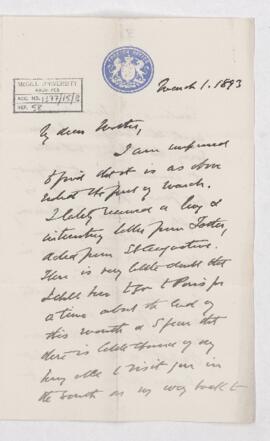 McGILL UNIVERSITY
ARCHIVES
ACC. NO. 1477/15/8
REF. 58
March 1. 1893
My dear Mother,
I am surprised
to find that it is as
the first of March.
I lately received a long &
interesting letter from Foster,
dated from St Augustine.
There is very little doubt that
I shall have to go to Paris for
a time about the end of
this month & I fear that
there is little chance of my
being able to visit you in
the South on my way back to